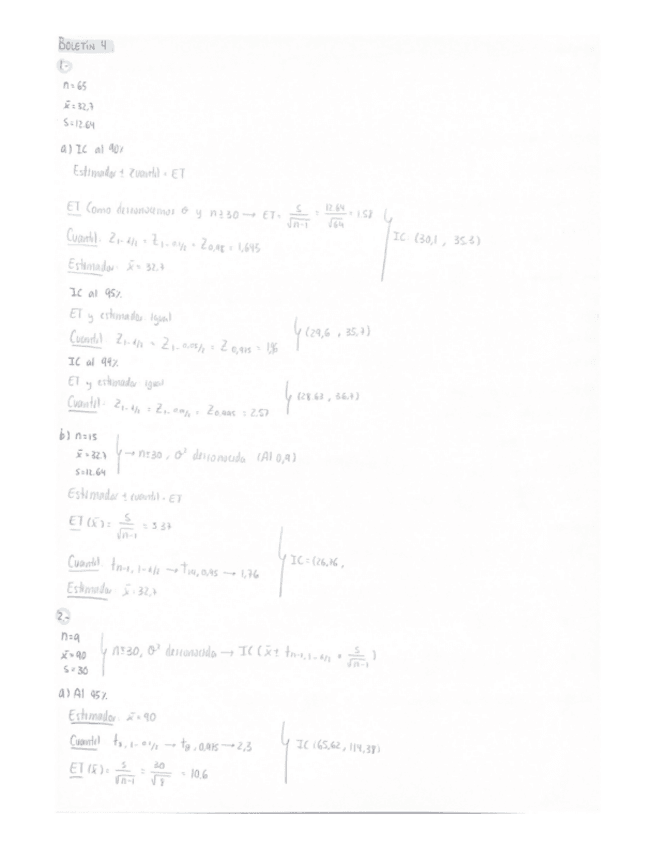 BOLETÍN 4
1.-
n=65
x̄=32,7
S=12.64
a) IC al 90%
Estimador ± Cuantil · ET
ET Como desconocemos σ y n≥30 → ET = S/√n-1 = 12.64/√64 = 1.58
Cuantil: Z1-α/2 = Z1-0.1/2 = Z0,95 = 1,645
IC: (30,1 , 35.3)
Estimador: x̄ = 32,7
IC al 95%
ET y estimador igual
Cuantil: Z1-α/2 = Z1-0,05/2 = Z0,975 = 1,96
(29,6 , 35,7)
IC al 99%
ET y estimador igual
Cuantil: Z1-α/2 = Z1-0.01/2 = Z0,995 = 2.57
(28.63 , 36.7)
b) n=15
x̄=32,7
S=12.64
→ n≤30, σ² desconocida (Al 0,9)
Estimador ± cuantil · ET
ET (x̄) = S/√n-1 = 3.37
Cuantil: tn-1, 1-α/2 → t14, 0,95 → 1,76
IC=(26,76 ,
Estimador: x̄ = 32,7
2.-
n=9
x̄=90
S=30
n≤30, σ² desconocida → IC (x̄ ± tn-1, 1-α/2 * S/√n-1)
a) Al 95%
Estimador: x̄ = 90
Cuantil t8, 1-α/2 → t8, 0,975 → 2,3
IC (65,62 , 114,38)
ET (x̄) = S/√n-1 = 30/√8 = 10,6